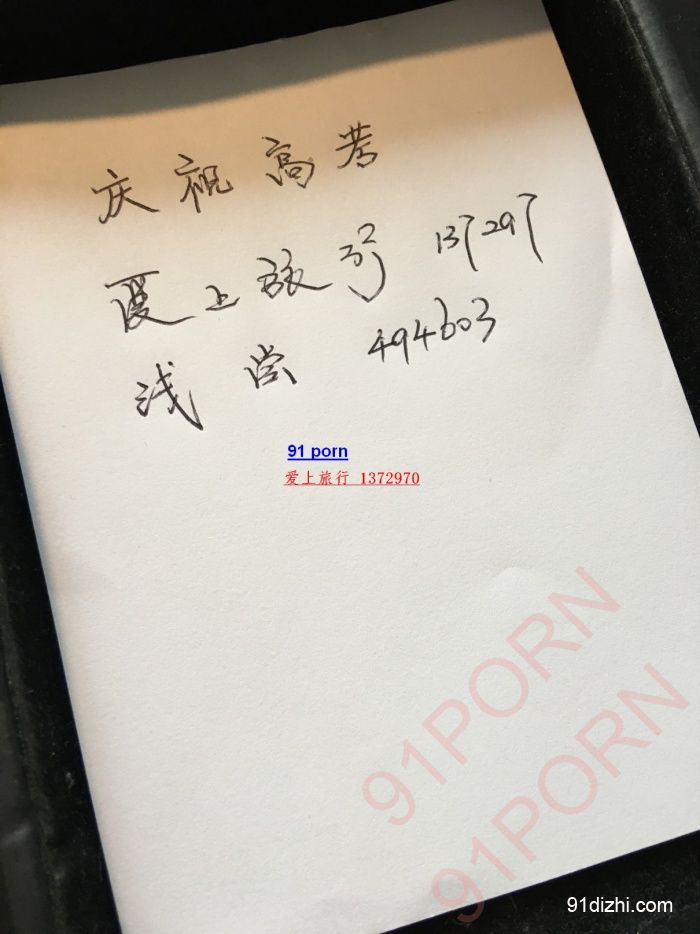 庆祝高考
爱上旅行 137297
浅尝 494603
91 porn
爱上旅行 1372970
91PORN
91PORN
91dizhi.com